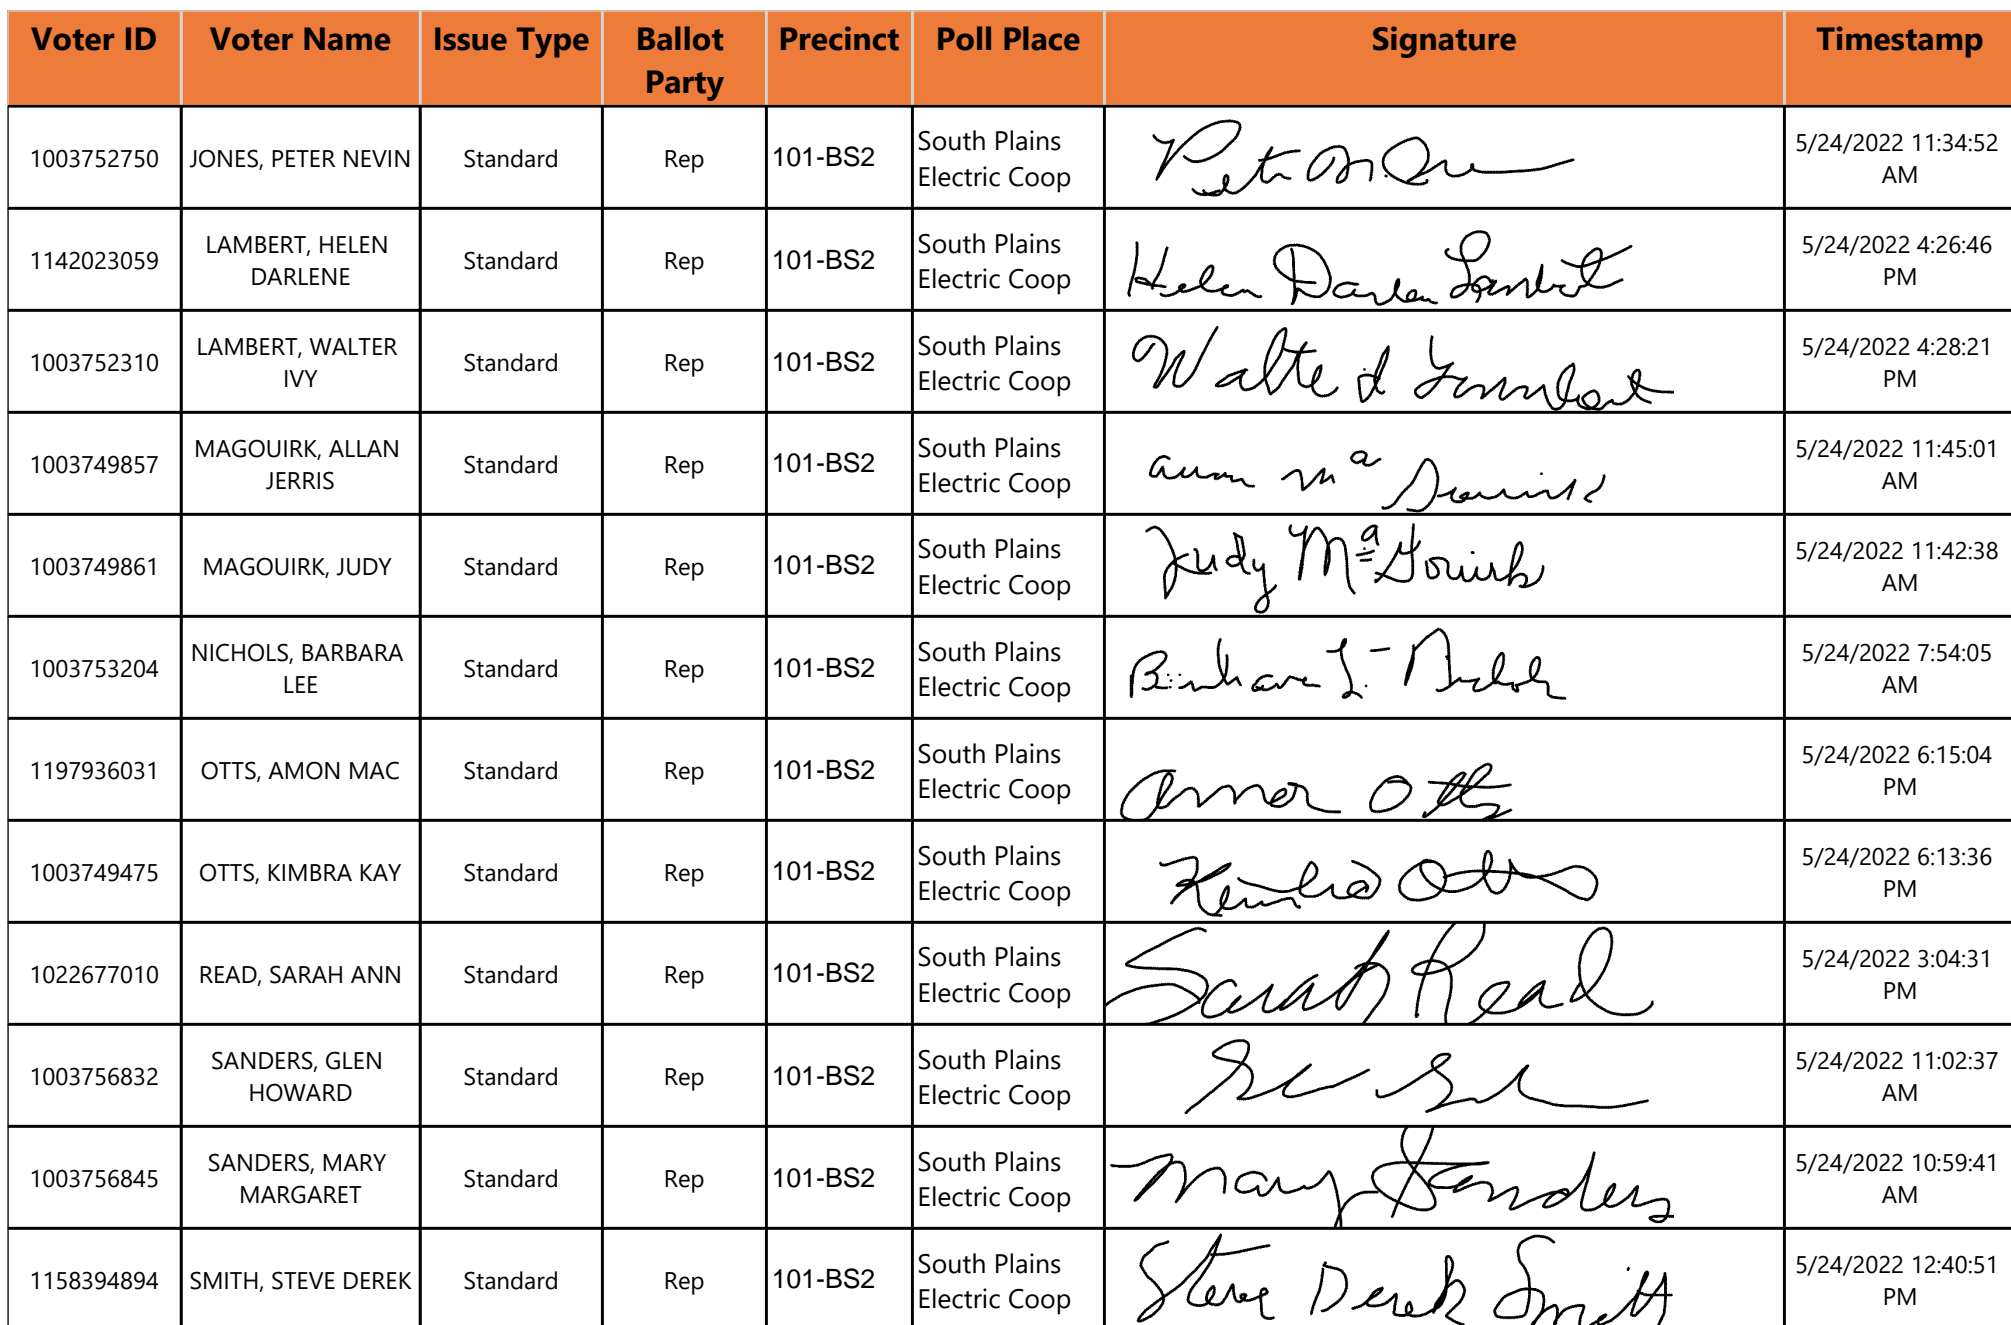 Voter ID Voter Name Issue Type Ballot Party Precinct Poll Place Signature Timestamp
1003752750 JONES, PETER NEVIN Standard Rep 101-BS2 South Plains Electric Coop 5/24/2022 11:34:52 AM
1142023059 LAMBERT, HELEN DARLENE Standard Rep 101-BS2 South Plains Electric Coop Helen Darlen Lambert 5/24/2022 4:26:46 PM
1003752310 LAMBERT, WALTER IVY Standard Rep 101-BS2 South Plains Electric Coop Walte I Lambert 5/24/2022 4:28:21 PM
1003749857 MAGOUIRK, ALLAN JERRIS Standard Rep 101-BS2 South Plains Electric Coop 5/24/2022 11:45:01 AM
1003749861 MAGOUIRK, JUDY Standard Rep 101-BS2 South Plains Electric Coop Judy MaGouirk 5/24/2022 11:42:38 AM
1003753204 NICHOLS, BARBARA LEE Standard Rep 101-BS2 South Plains Electric Coop 5/24/2022 7:54:05 AM
1197936031 OTTS, AMON MAC Standard Rep 101-BS2 South Plains Electric Coop Amon Otts 5/24/2022 6:15:04 PM
1003749475 OTTS, KIMBRA KAY Standard Rep 101-BS2 South Plains Electric Coop Kimbra Otts 5/24/2022 6:13:36 PM
1022677010 READ, SARAH ANN Standard Rep 101-BS2 South Plains Electric Coop Sarah Read 5/24/2022 3:04:31 PM
1003756832 SANDERS, GLEN HOWARD Standard Rep 101-BS2 South Plains Electric Coop 5/24/2022 11:02:37 AM
1003756845 SANDERS, MARY MARGARET Standard Rep 101-BS2 South Plains Electric Coop Mary Sanders 5/24/2022 10:59:41 AM
1158394894 SMITH, STEVE DEREK Standard Rep 101-BS2 South Plains Electric Coop Steve Derek Smith 5/24/2022 12:40:51 PM